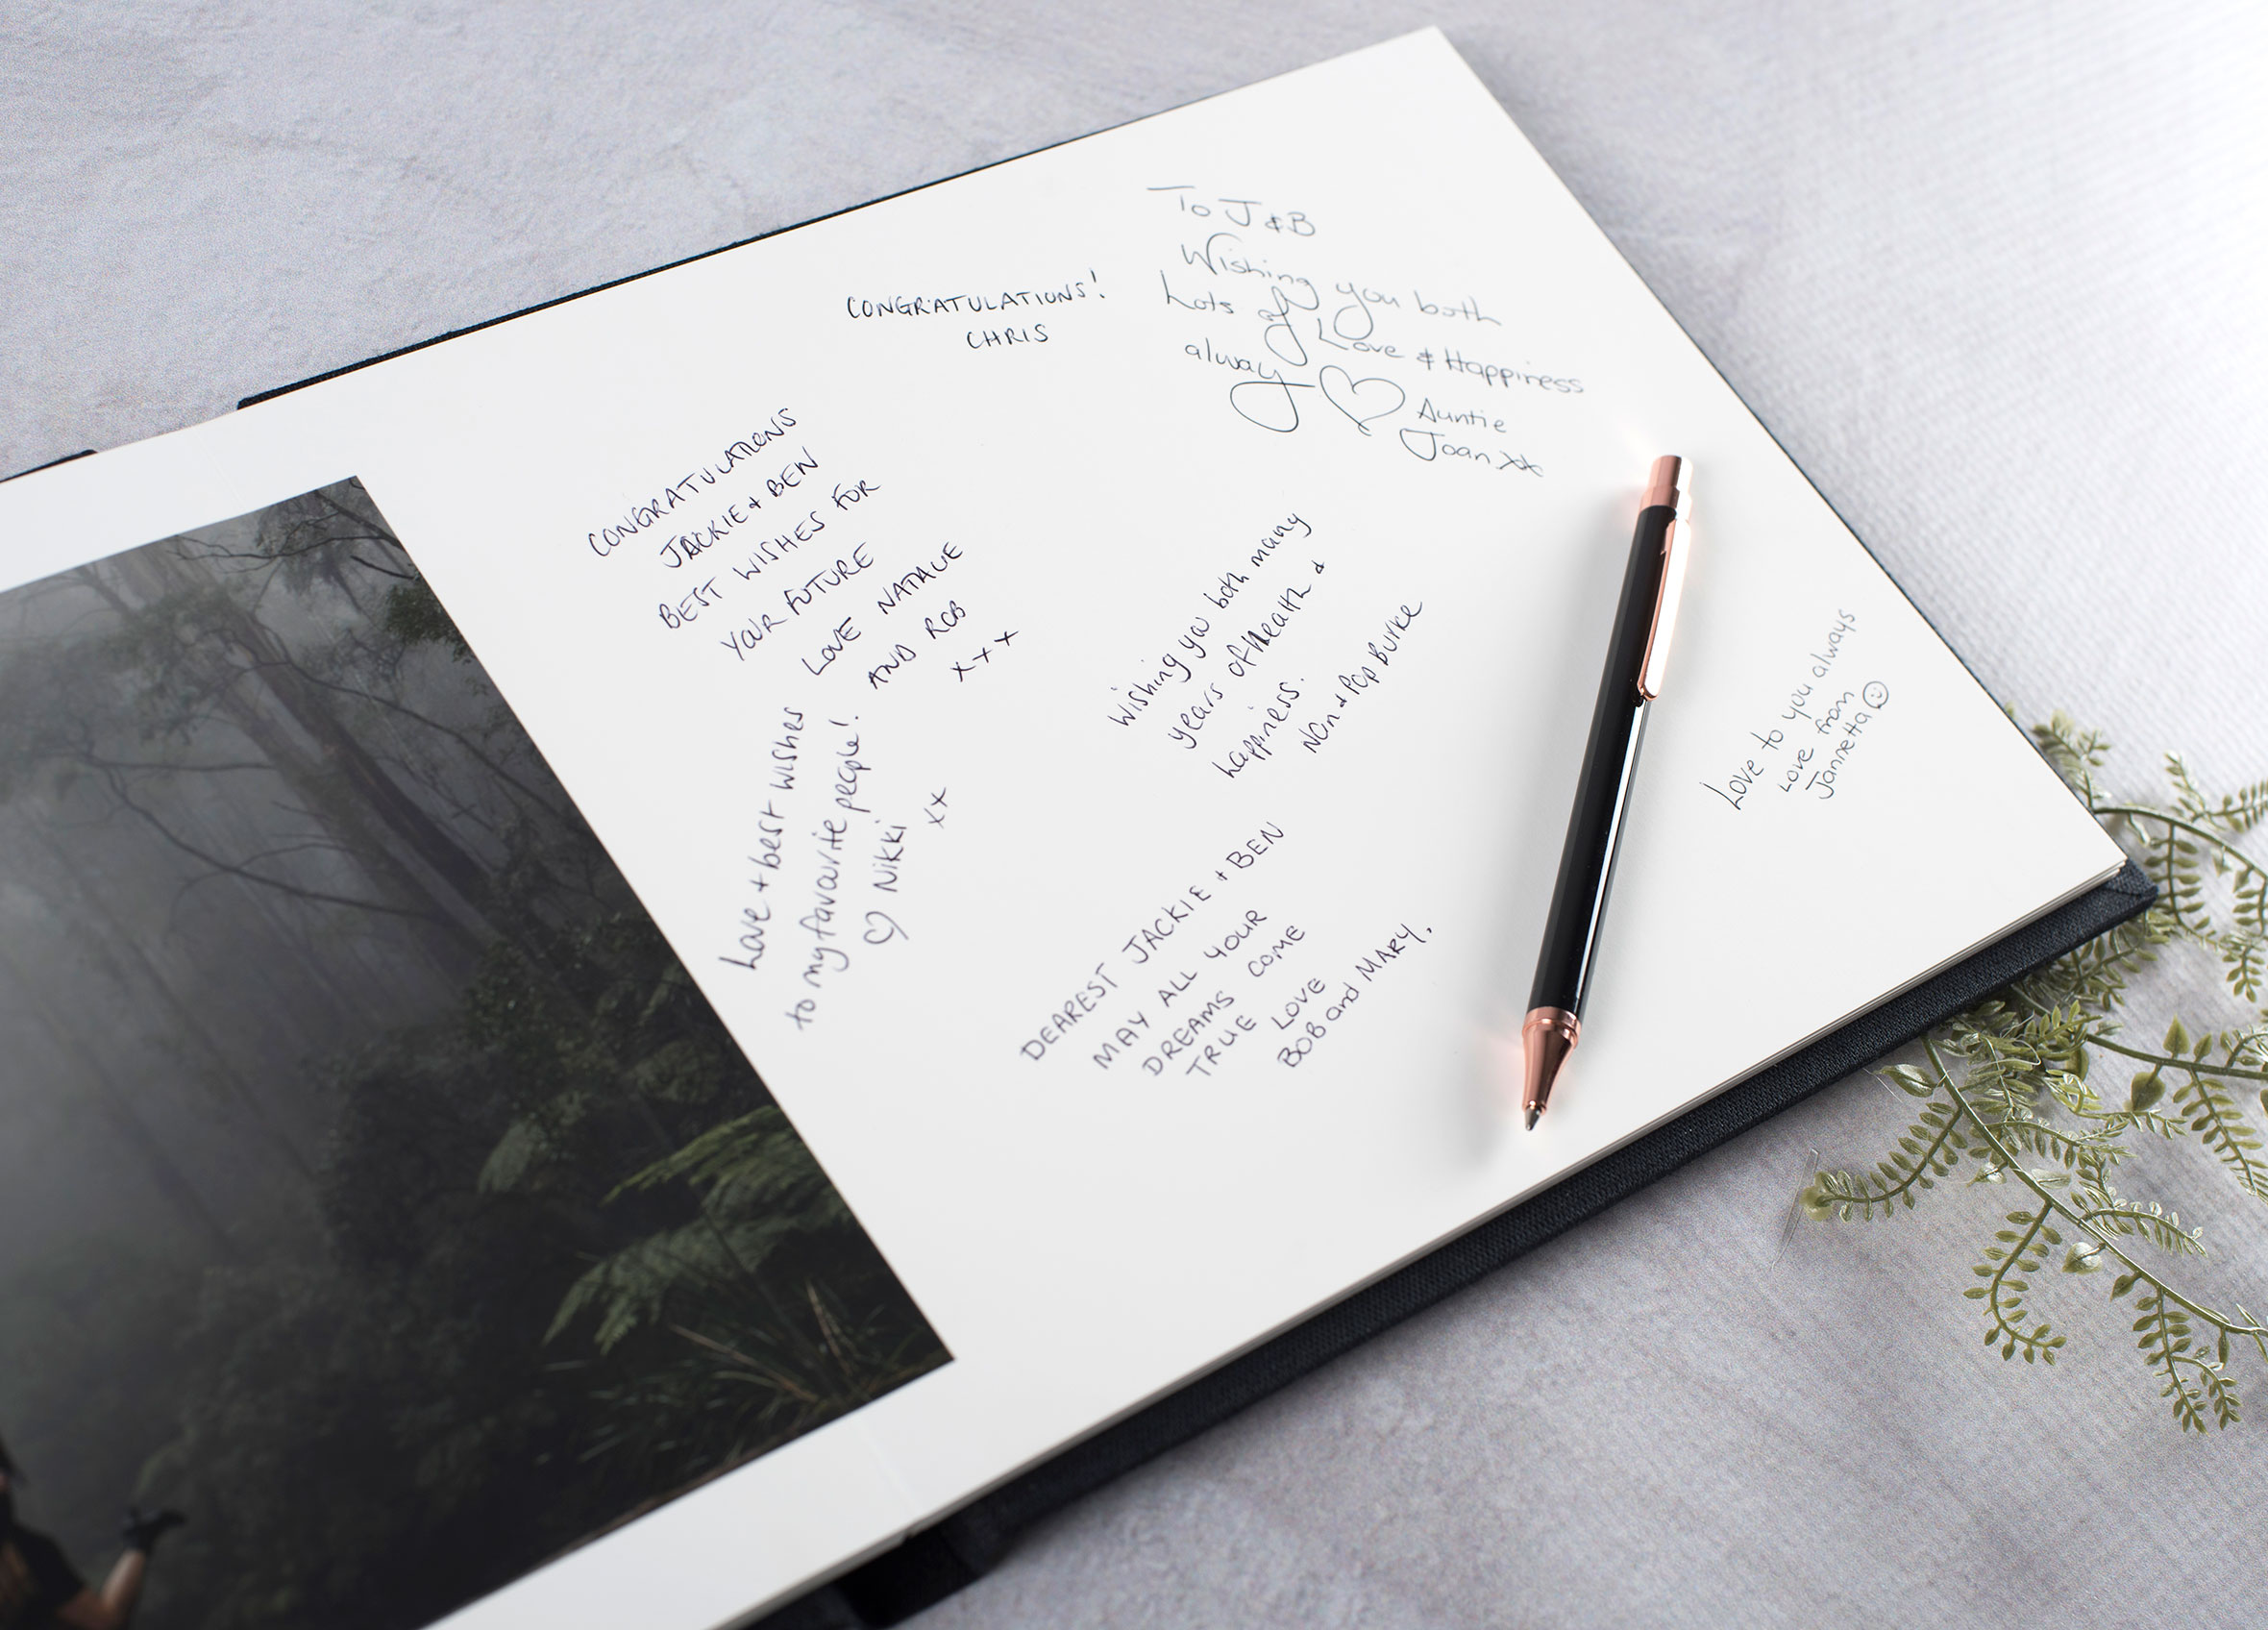 CONGRATULATIONS!
CHRIS
To J & B
Wishing you both
Lots of Love & Happiness
always
Auntie
Joan xx
CONGRATULATIONS
JACKIE + BEN
BEST WISHES FOR
YOUR FUTURE
LOVE NATALIE
AND ROB
x x x
Wishing you both many
years of health &
happiness.
Nan & Pop Burke
Love + best wishes
to my favourite people!
♡ Nikki
xx
DEAREST JACKIE + BEN
MAY ALL YOUR
DREAMS COME
TRUE LOVE
BOB and MARY.
Love to you always
Love from
Jannetta ☺